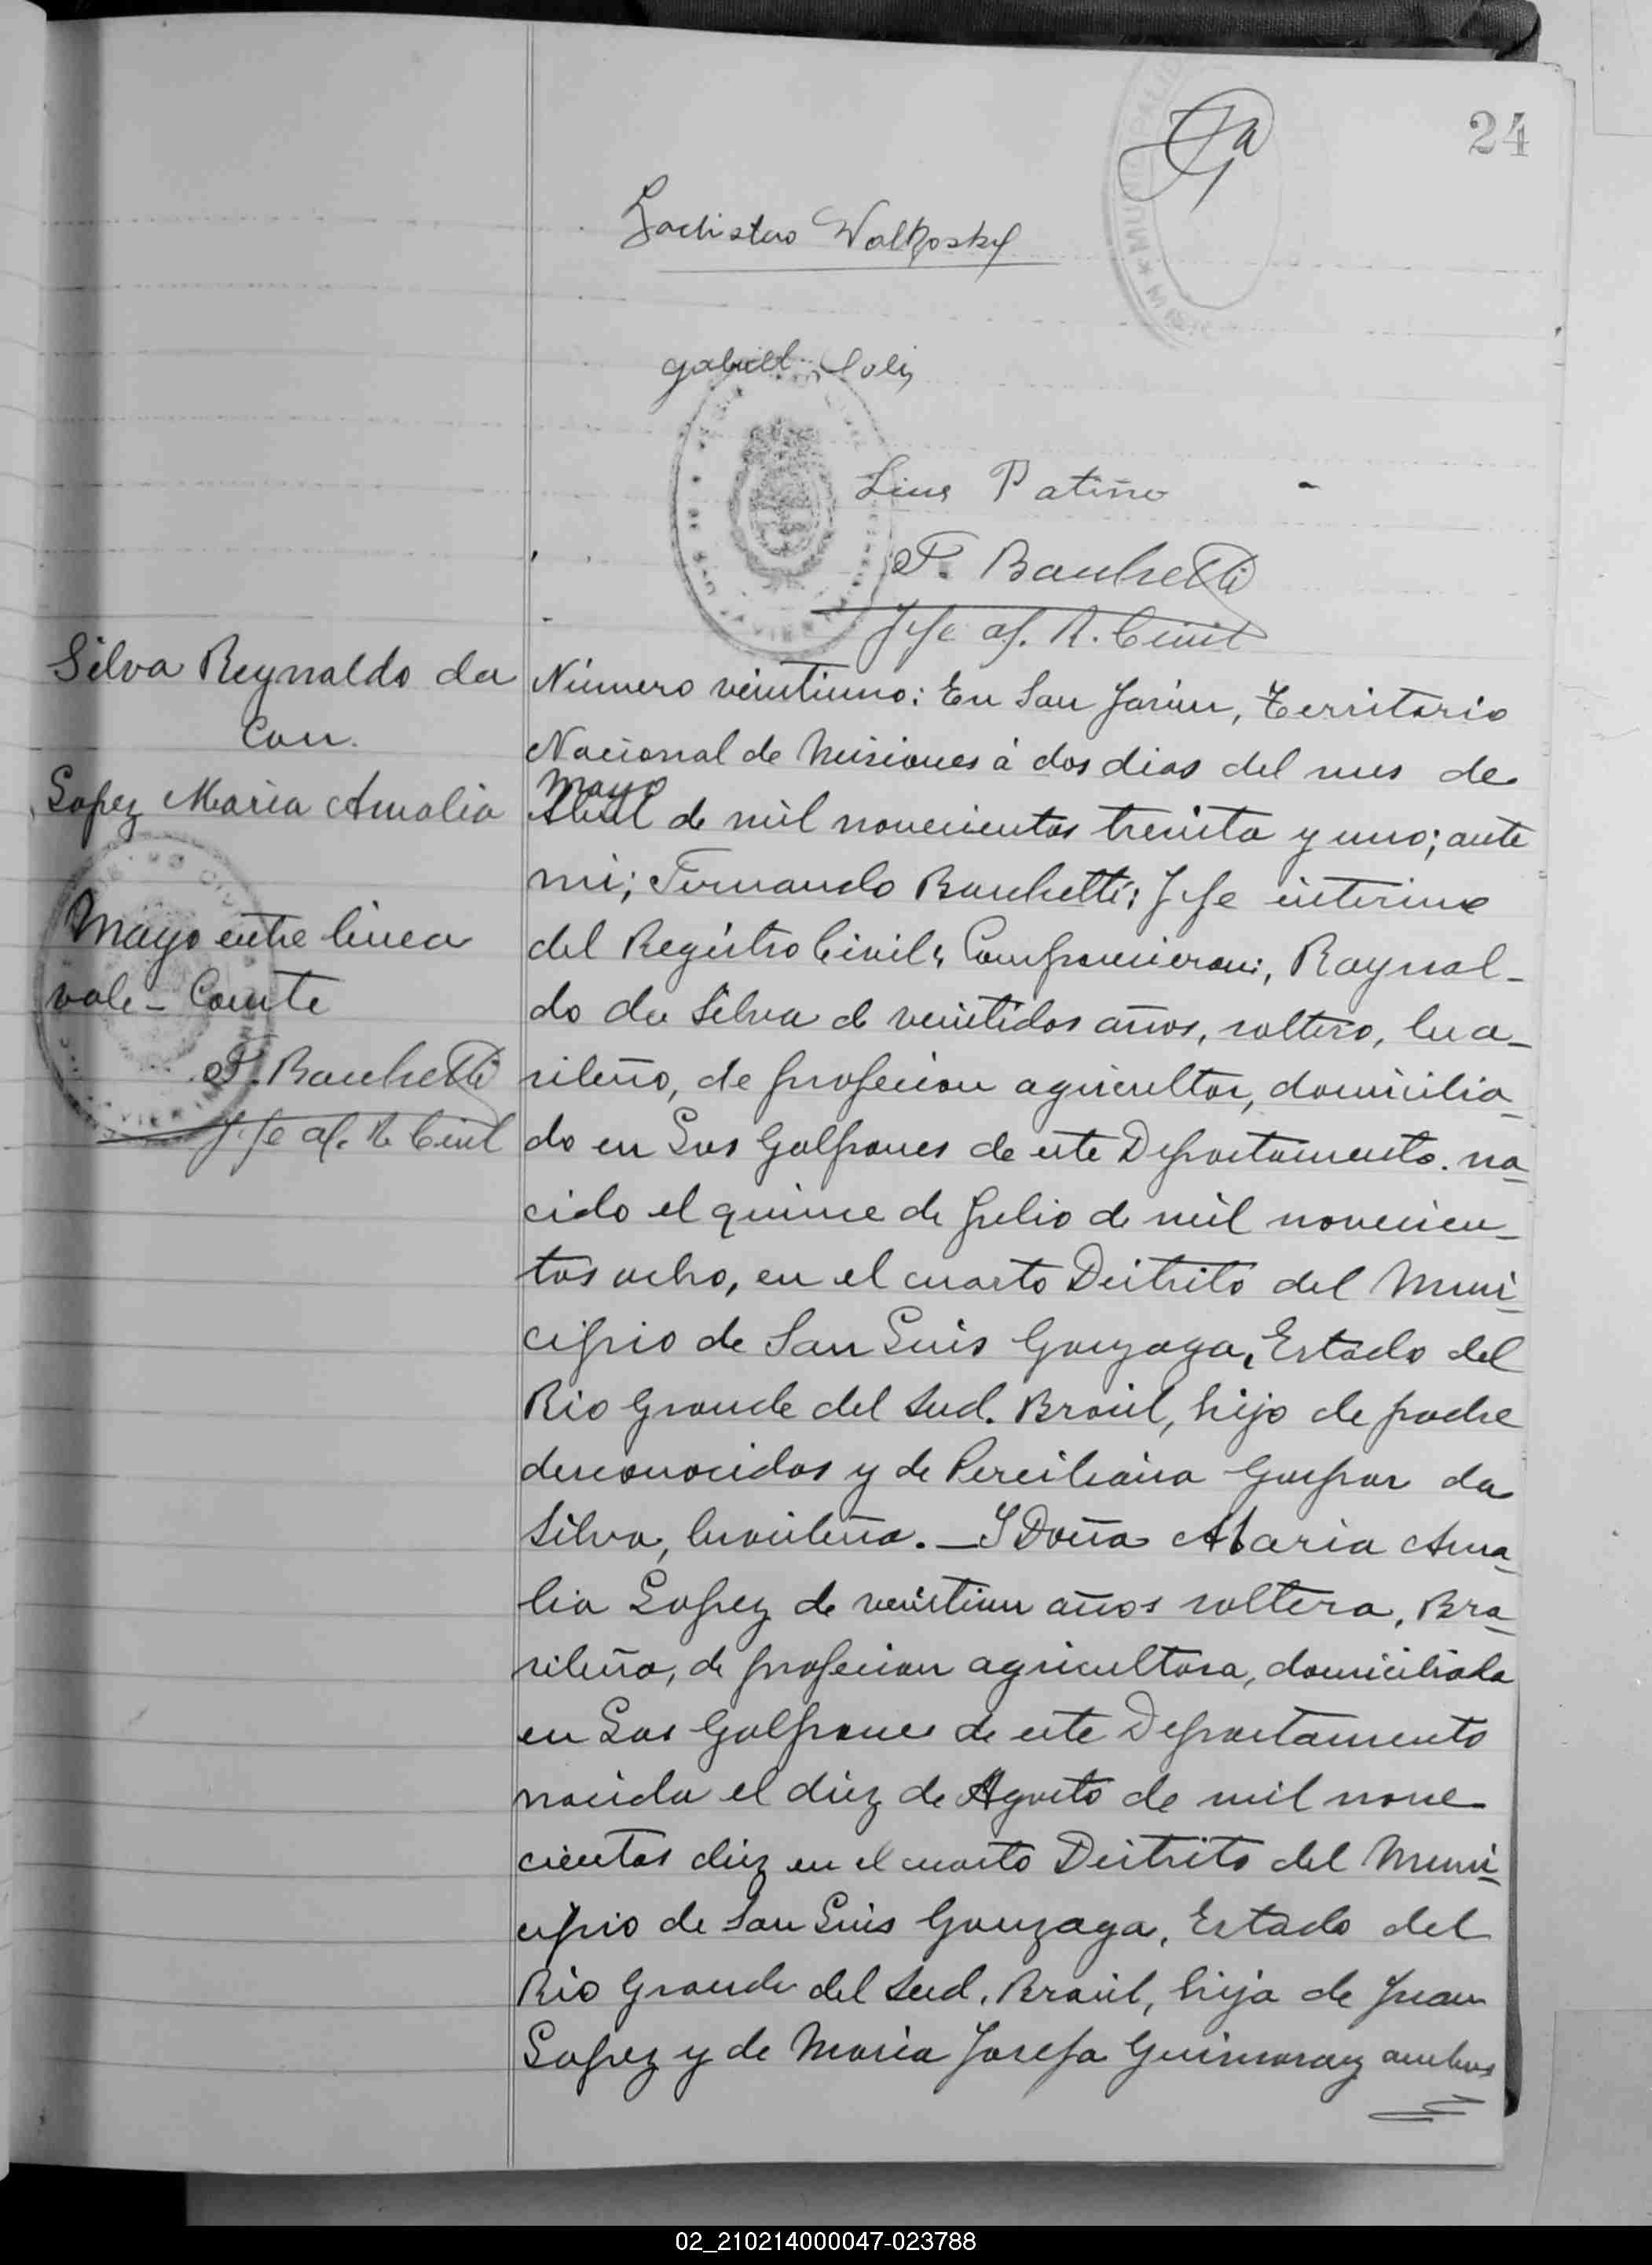 24
Ladislao Walkosky
Gabriel Solis
Lino Patiño
F. Banchetti
Jefe of. R. Civil
Silva Reynaldo da
Con.
Lopez Maria Amalia
Mayo entre linea
vale - Conste
F. Banchetti
Jefe of. R. Civil
Número veintiuno: En San Javier, Territorio
Nacional de Misiones á dos dias del mes de
Mayo
Abril de mil novecientos treinta y uno; ante
mi; Fernando Banchetti; Jefe interino
del Registro Civil, Comparecieron; Raynal-
do da Silva de veintidos años, soltero, bra-
sileño, de profesion agricultor, domicilia-
do en Los Galpones de este Departamento. na-
cido el quince de Julio de mil novecien-
tos ocho, en el cuarto Distrito del Muni-
cipio de San Luis Gonzaga, Estado del
Rio Grande del Sud. Brasil, hijo de padre
desconocidos y de Perciliana Gaspar da
Silva, brasileña. - Y Doña Maria Ama-
lia Lopez de veintiun años soltera, Bra-
sileña, de profesion agricultora, domiciliada
en Los Galpones de este Departamento
nacida el diez de Agosto de mil nove-
cientos diez en el cuarto Distrito del Muni-
cipio de San Luis Gonzaga, Estado del
Rio Grande del Sud, Brasil, hija de Juan
Lopez y de Maria Josefa Guimaraez ambos
02_210214000047-023788